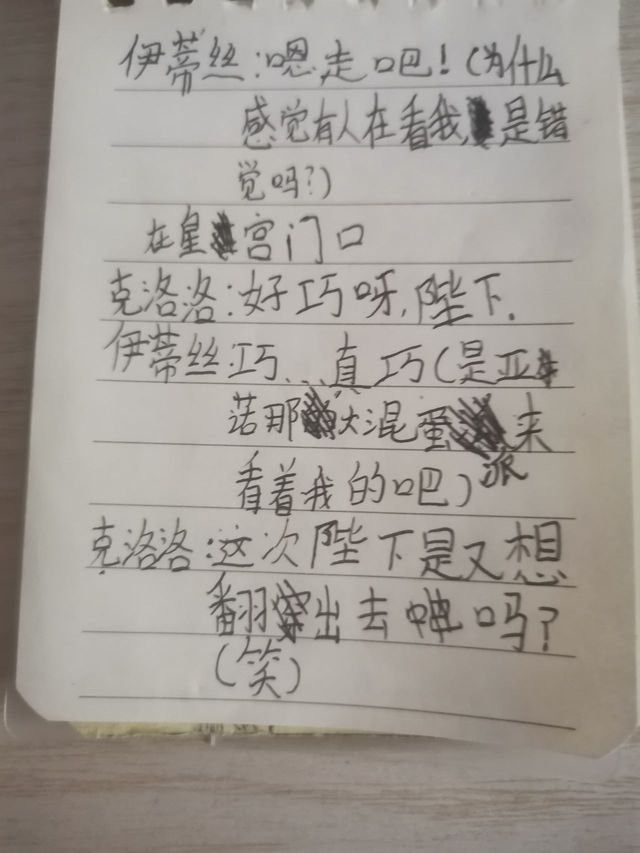 伊蒂丝:嗯,走吧!(为什么
感觉有人在看我,是错
觉吗?)
在皇宫门口
克洛洛:好巧呀,陛下.
伊蒂丝:巧...真巧(是亚
诺那大混蛋派来
看着我的吧)
克洛洛:这次陛下是又想
翻出去吗?
(笑)